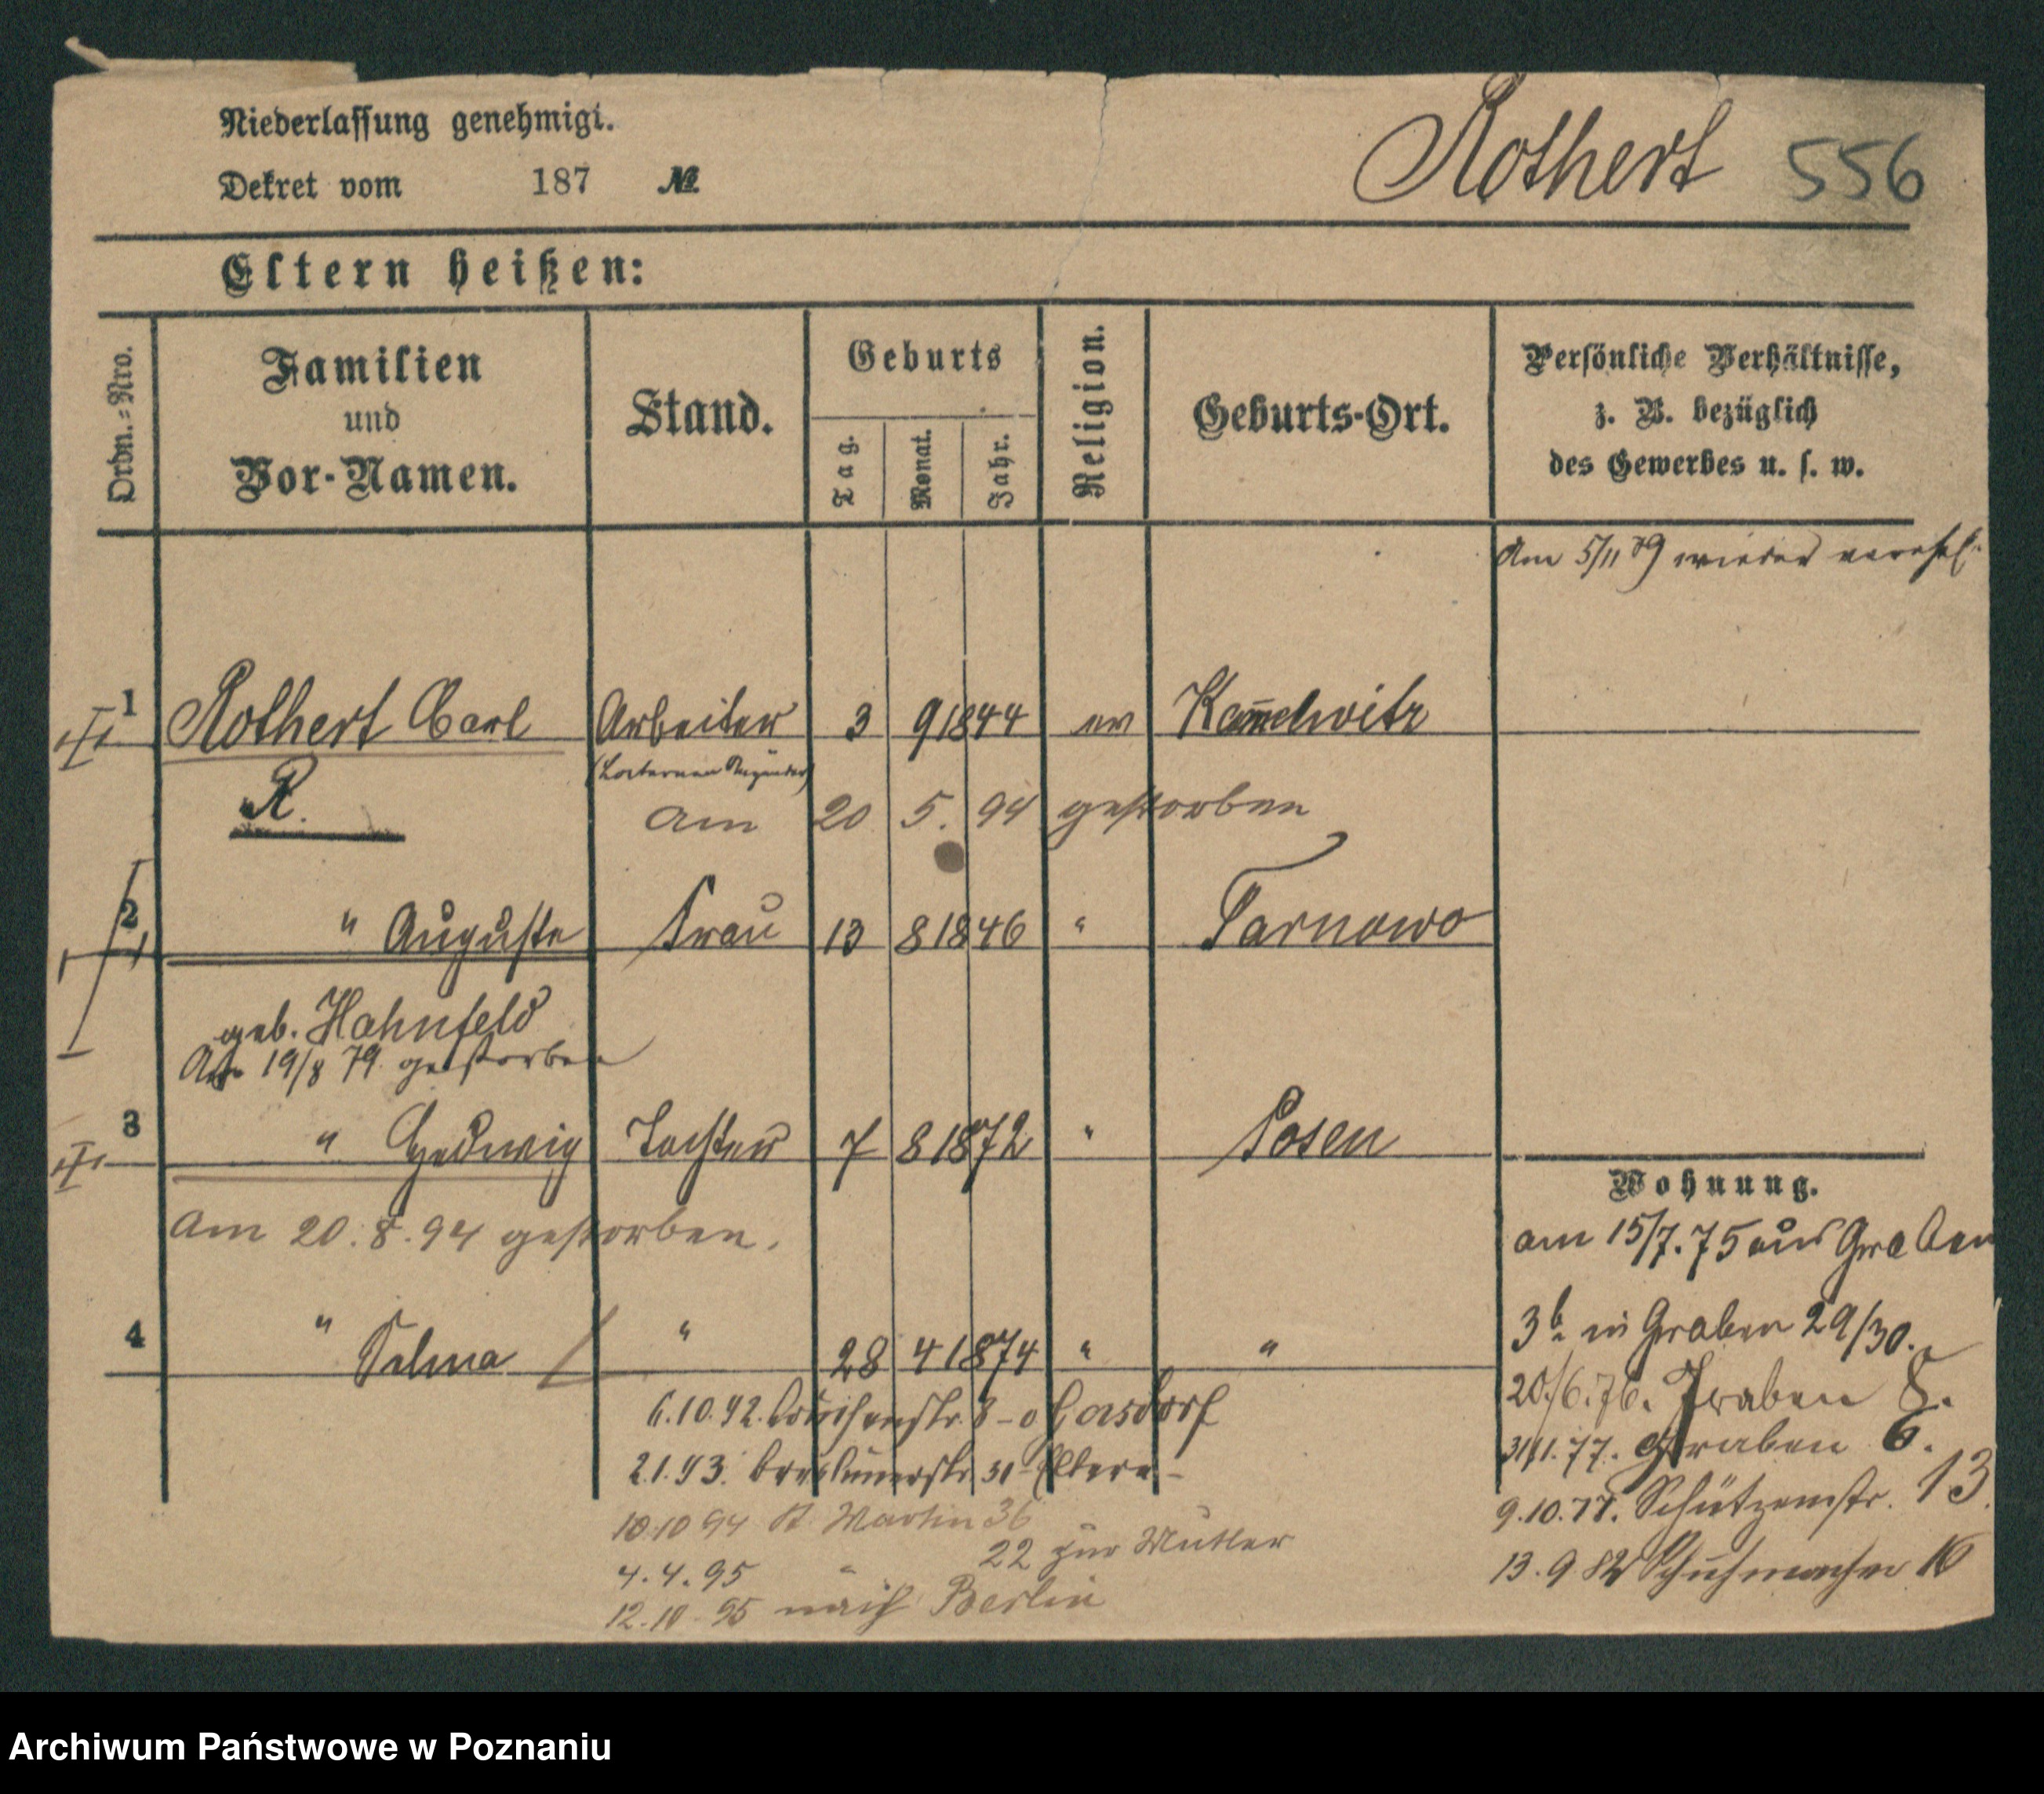 Niederlassung genehmigt.
Dekret vom 187 №
Rothert 556
Eltern heißen:
Ordn.-Nro.
Familien
und
Vor-Namen.
Stand.
Geburts
Tag.
Monat.
Jahr.
Religion.
Geburts-Ort.
Persönliche Verhältnisse,
z. B. bezüglich
des Gewerbes u. s. w.
Am 5/11 79 wieder verehel.
1 Rothert Carl Arbeiter 3 9 1844 ev
R.
am 20 5. 94 gestorben
2 " Auguste Frau 13 8 1846 " Tarnowo
geb. Hahnfeld
Am 19/8 79 gestorben
3 " Hedwig Tochter 7 8 1872 " Posen
Am 20.8.94 gestorben.
4 " Selma " 28 4 1874 " "
Wohnung.
am 15/7.75 aus Graben
3b. in Graben 29/30.
20/6.76. Graben 8.
Graben 6.
9.10.77. Schützenstr. 13.
13.9 82 Schuhmacher 16
6.10.92.
2.1.93. 31 Eltern
10.10 94 St. Martin 36
4.4.95 " 22 zur Mutter
12.10.95 nach Berlin
Archiwum Państwowe w Poznaniu